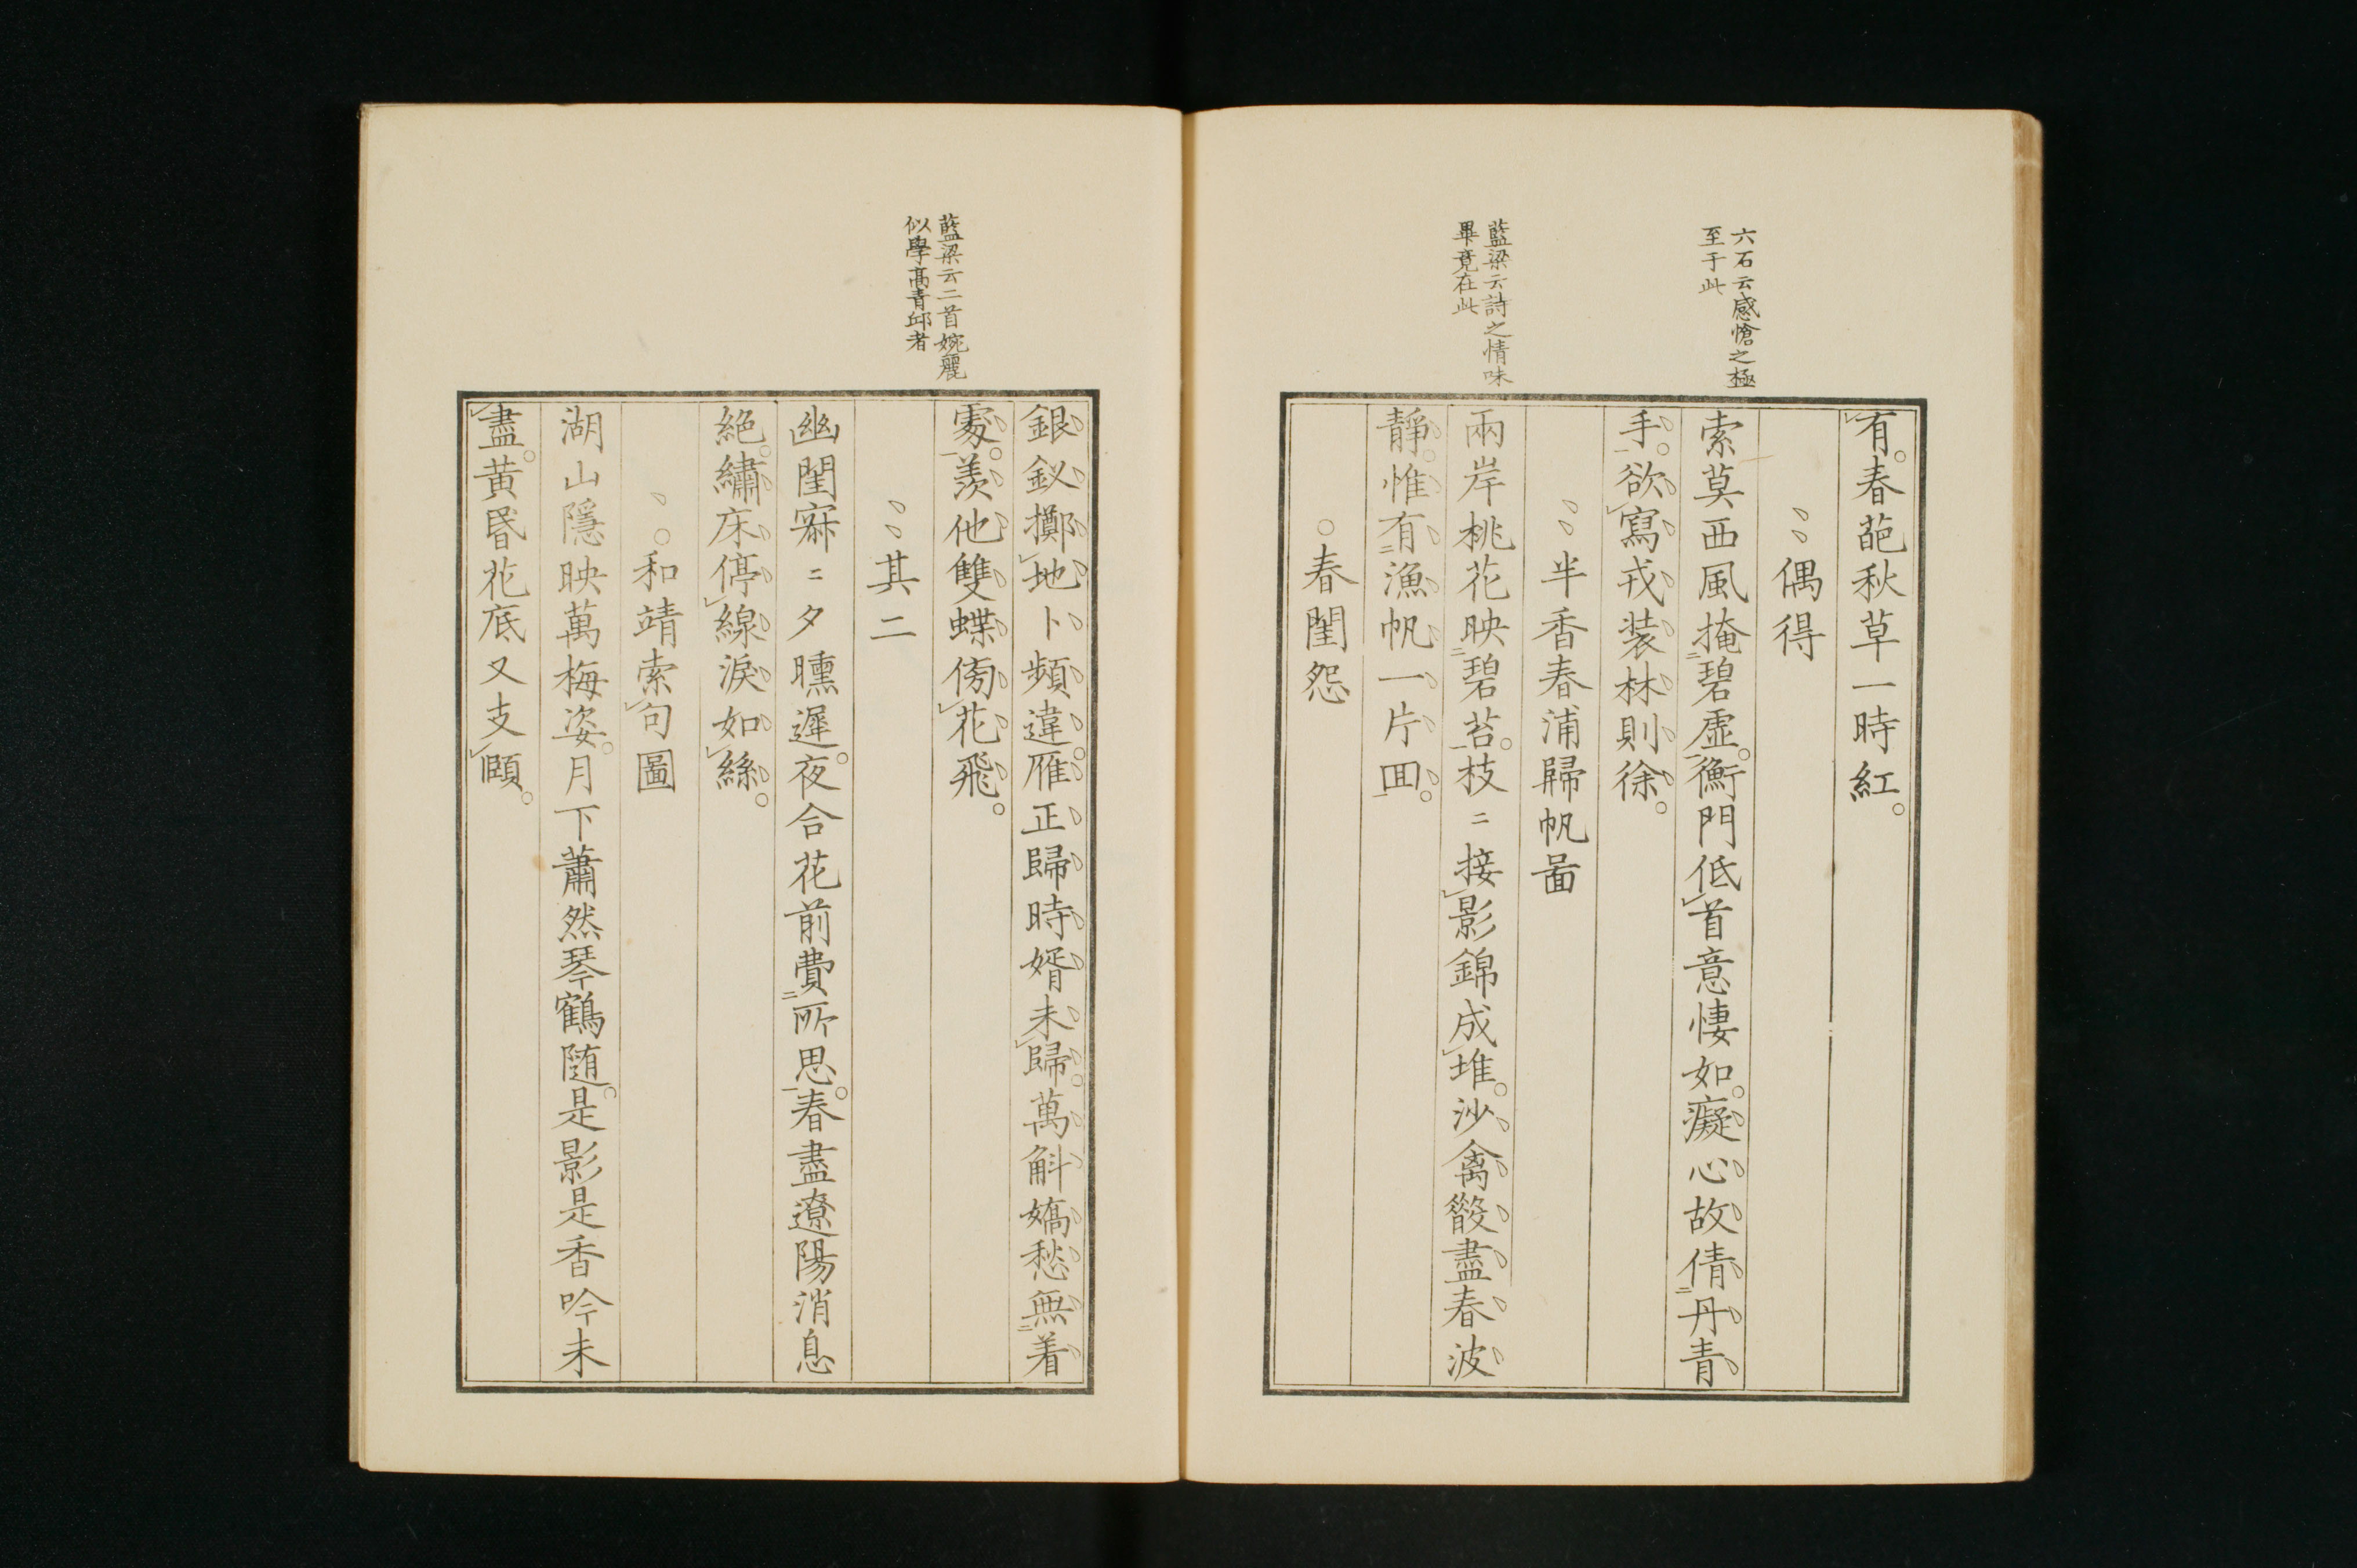 有。春葩秋草一時紅。
偶得
六石云感愴之極
至于此
索莫西風掩碧虛。衡門低首意悽如。癡心故倩丹青
手。欲寫戎装林則徐。
半香春浦歸帆啚
藍梁云詩之情味
畢竟在此
兩岸桃花映碧苔。枝〻接影錦成堆。沙禽毿盡春波
靜。惟有漁帆一片囬。
春閨怨
銀釵擲地卜頻違。雁正歸時婿未歸。萬斛嬌愁無着
處。羨他雙蝶傍花飛。
藍梁云二首婉麗
似學高青邱者
其二
幽閨寂〻夕曛遲。夜合花前費所思。春盡遼陽消息
絕。繡床停線淚如絲。
和靖索句圖
湖山隱映萬梅姿。月下蕭然琴鶴随。是影是香吟未
盡。黃昏花底又支頤。